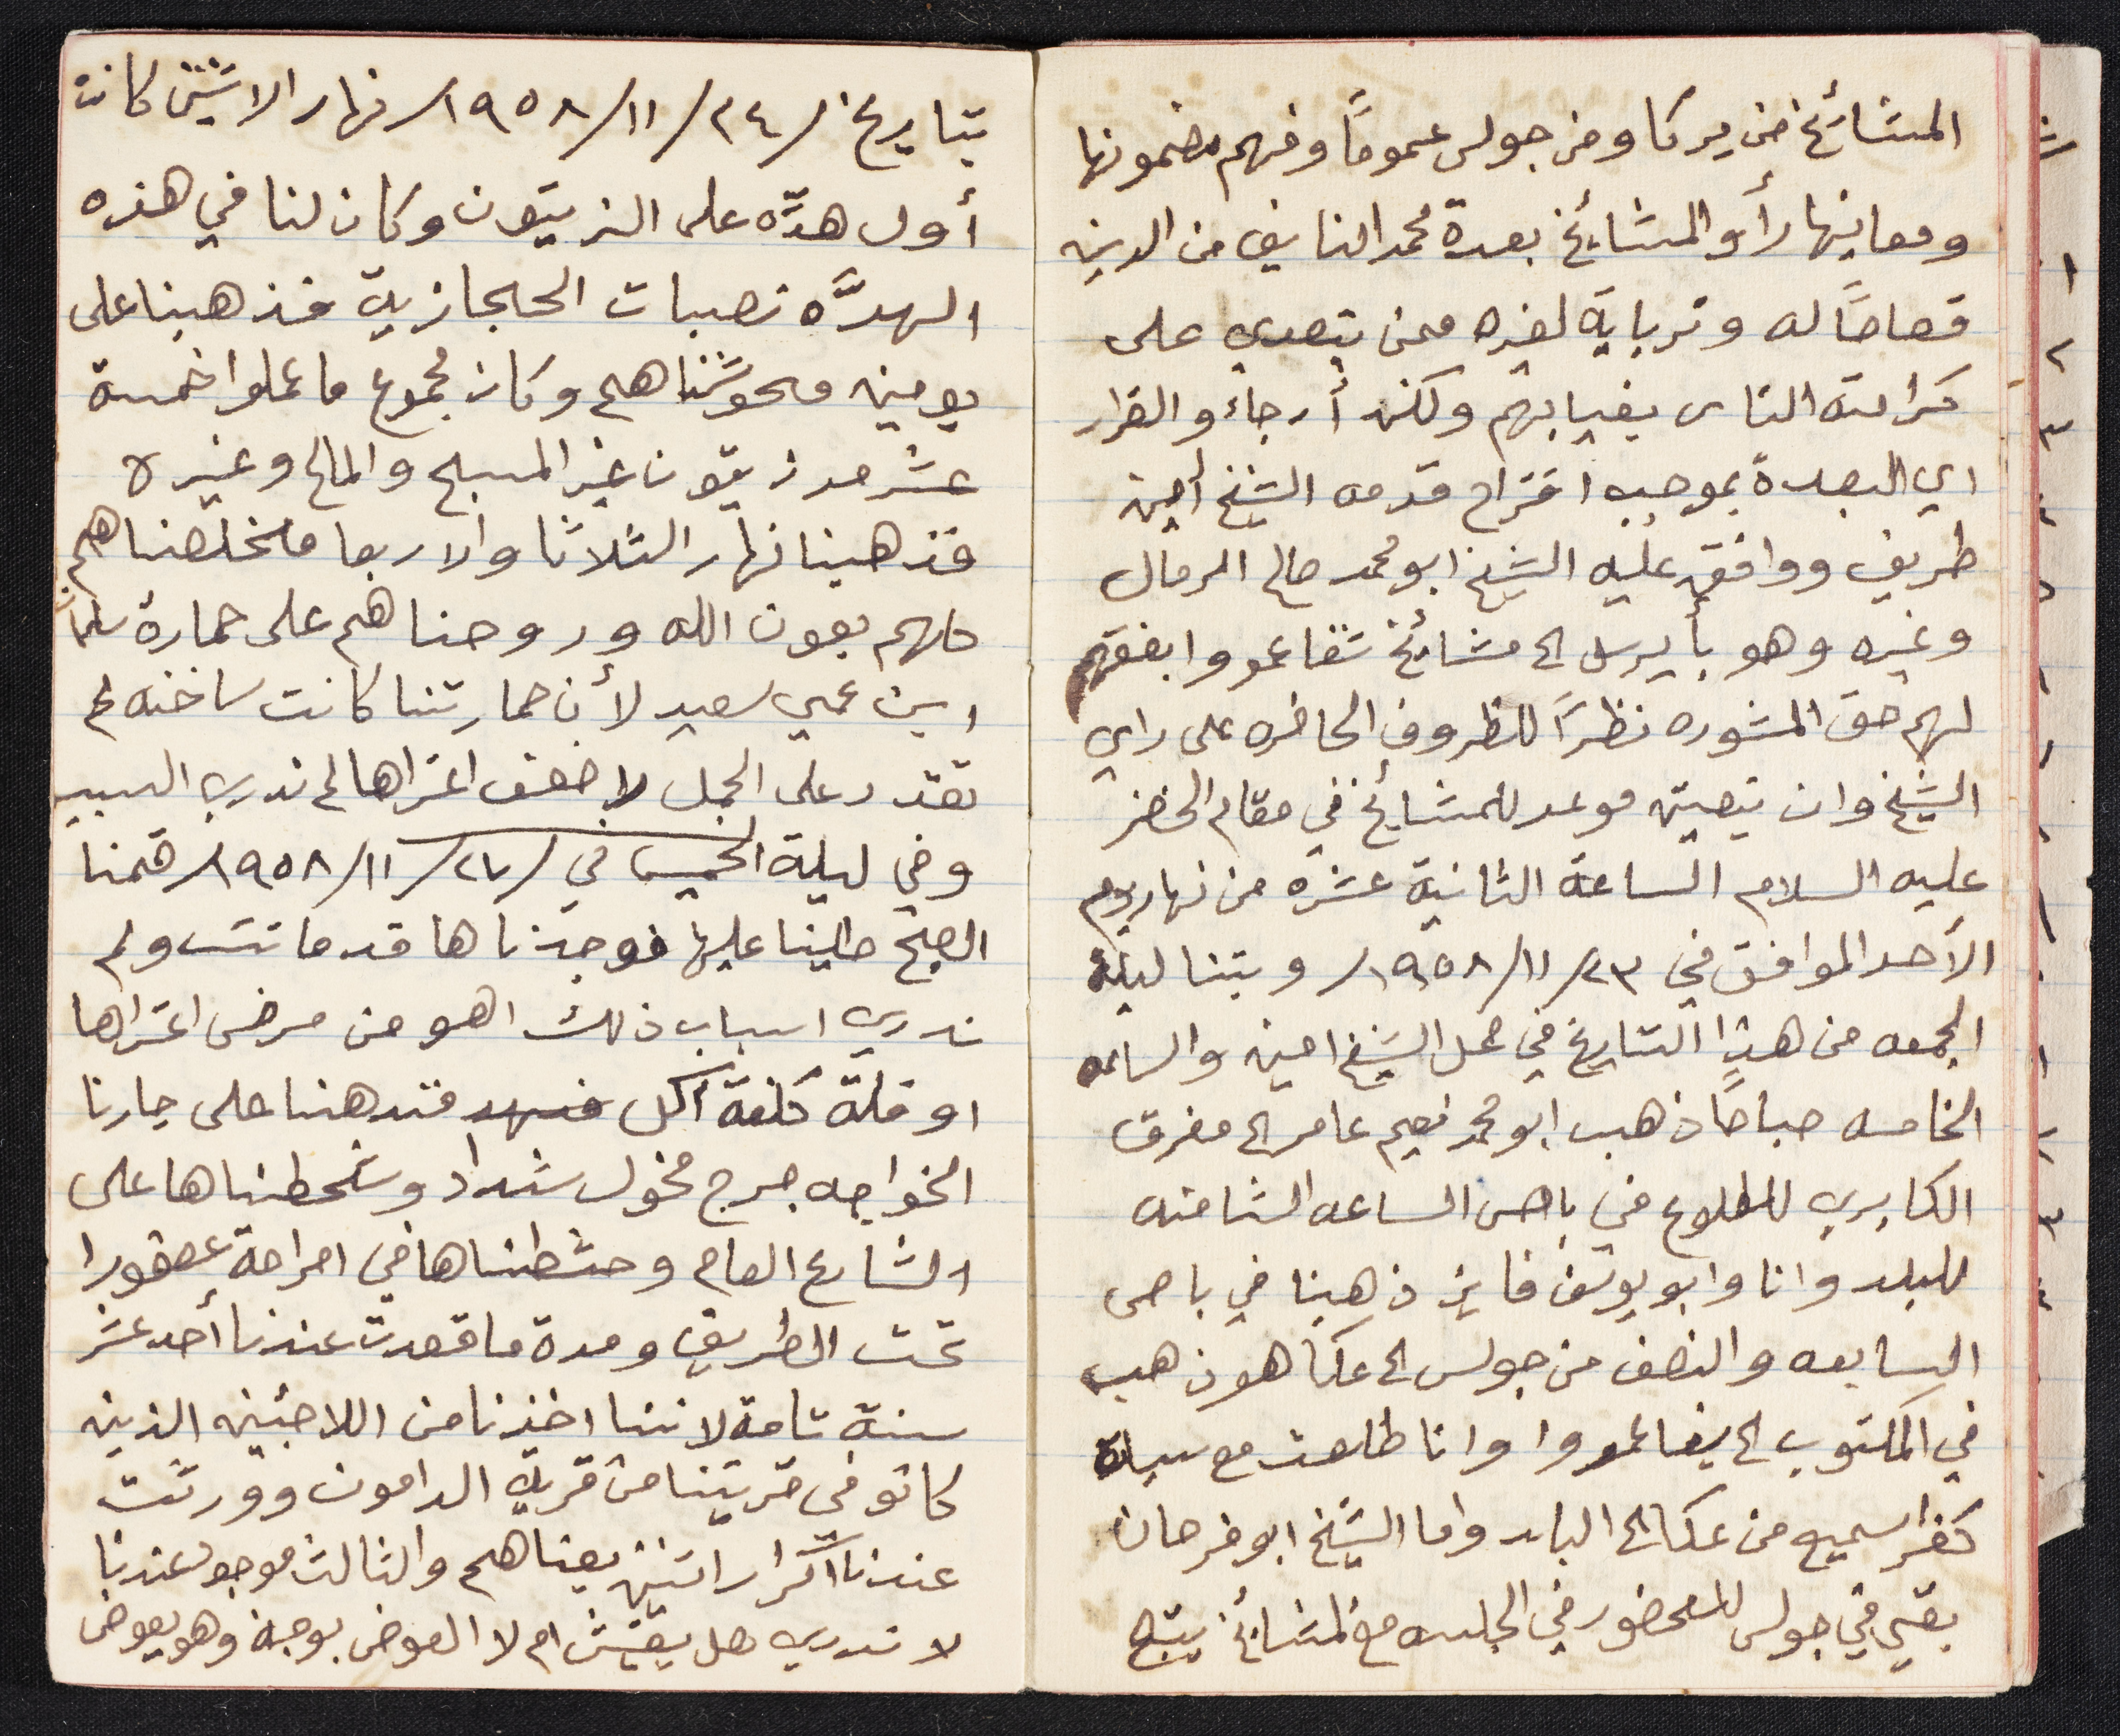 المشائخ من يركا ومن جولس عموماً وفهم مضمونها
ومعاينها رأو المشائخ بعدة محمد النايف من الدين
قصاصاً له وتربايه لغيره ممن يتعدي على
كرامته الناس بغيابهم ولكن أرجاء والقرار
اي البعدة بموجب اقتراح قدمه الشيخ أمين
طريف ووافق عليه الشيخ ابو محمد صالح الرمال
وغيره وهو بأ يرسل الى مشائخ شفاعمرو
لهم حق المشوره نظراً للظروف الحاضره على راي
الشيخ وان يتعيّن موعد للمشائخ في مقام الخضر
عليه السلام الساعة الثانية عشره من نهار يوم
الأحد الموافق في ٢٣/١١/١٩٥٨/ وبتنا ليلة
الجمعه من هذا التاريخ في محل الشيخ امين والساعه
الخامسه صباحاً ذهب ابو محمد نعيم عامر الى مفرق
الكابري للطلوع في باص الساعه الثامنه
للبلد وانا وابو يوسف فايز ذهبنا في باص
السابعه والنصف من جولس الى عكا هو ذهب
في المكتوب الى يفا عمروا وانا طلعت مع سيارة
كفر سميع من عكا الى البلد واما الشيخ ابو فرحان
بقي في جولس للحضور في الجلسه مع المشائخ
ش
١
٢
٣
٤
٥
بتاريخ /٢٤/١١/١٩٥٨/ نهار الاثنين كانت
أول هدّه على الزيتون وكان لنا في هذه
الهدّه نصيبات الحجازية فذهبنا على
يومين وحوشناهم وكان مجموع ما عملوا خمسة
عشر مد زيتون غير المسبح والمالح وغيره
فذهبنا نهار الثلاثا والاربعا فخلصناهم
كلهم بعون الله وروحناهم على حمارة
ابن عمي سعيد لأن حمارتنا كانت ساخنه لم
تقدر على الحمل لا ضعف اعتراها لم ندري السبب
وفي ليلة الخميس في /٢٧/١١/١٩٥٨/ قمنا
الصبح طلينا عليها فوجدناها قد ماتت ولم
ندري اسباب ذلك اهو من مرض اعتراها
او قلة كلفة أكل فندهنا على جارنا
الخواجه جرج مخول شداد وشحطناها على
الشارع العام وحشطناها في امراحة عصفورا
تحت الطريق ومدة ما قعدت عندنا أحد عشر
سنة تامة لاننا اخذنا من اللاجئين الذين
كانو في قريتنا من قرية الدامون وورثت
عندنا اكرار اثنين بعناهم والثالث موجود عندنا
لا ندري هل يعيش ام لا العوض بوجه وهو يعوض